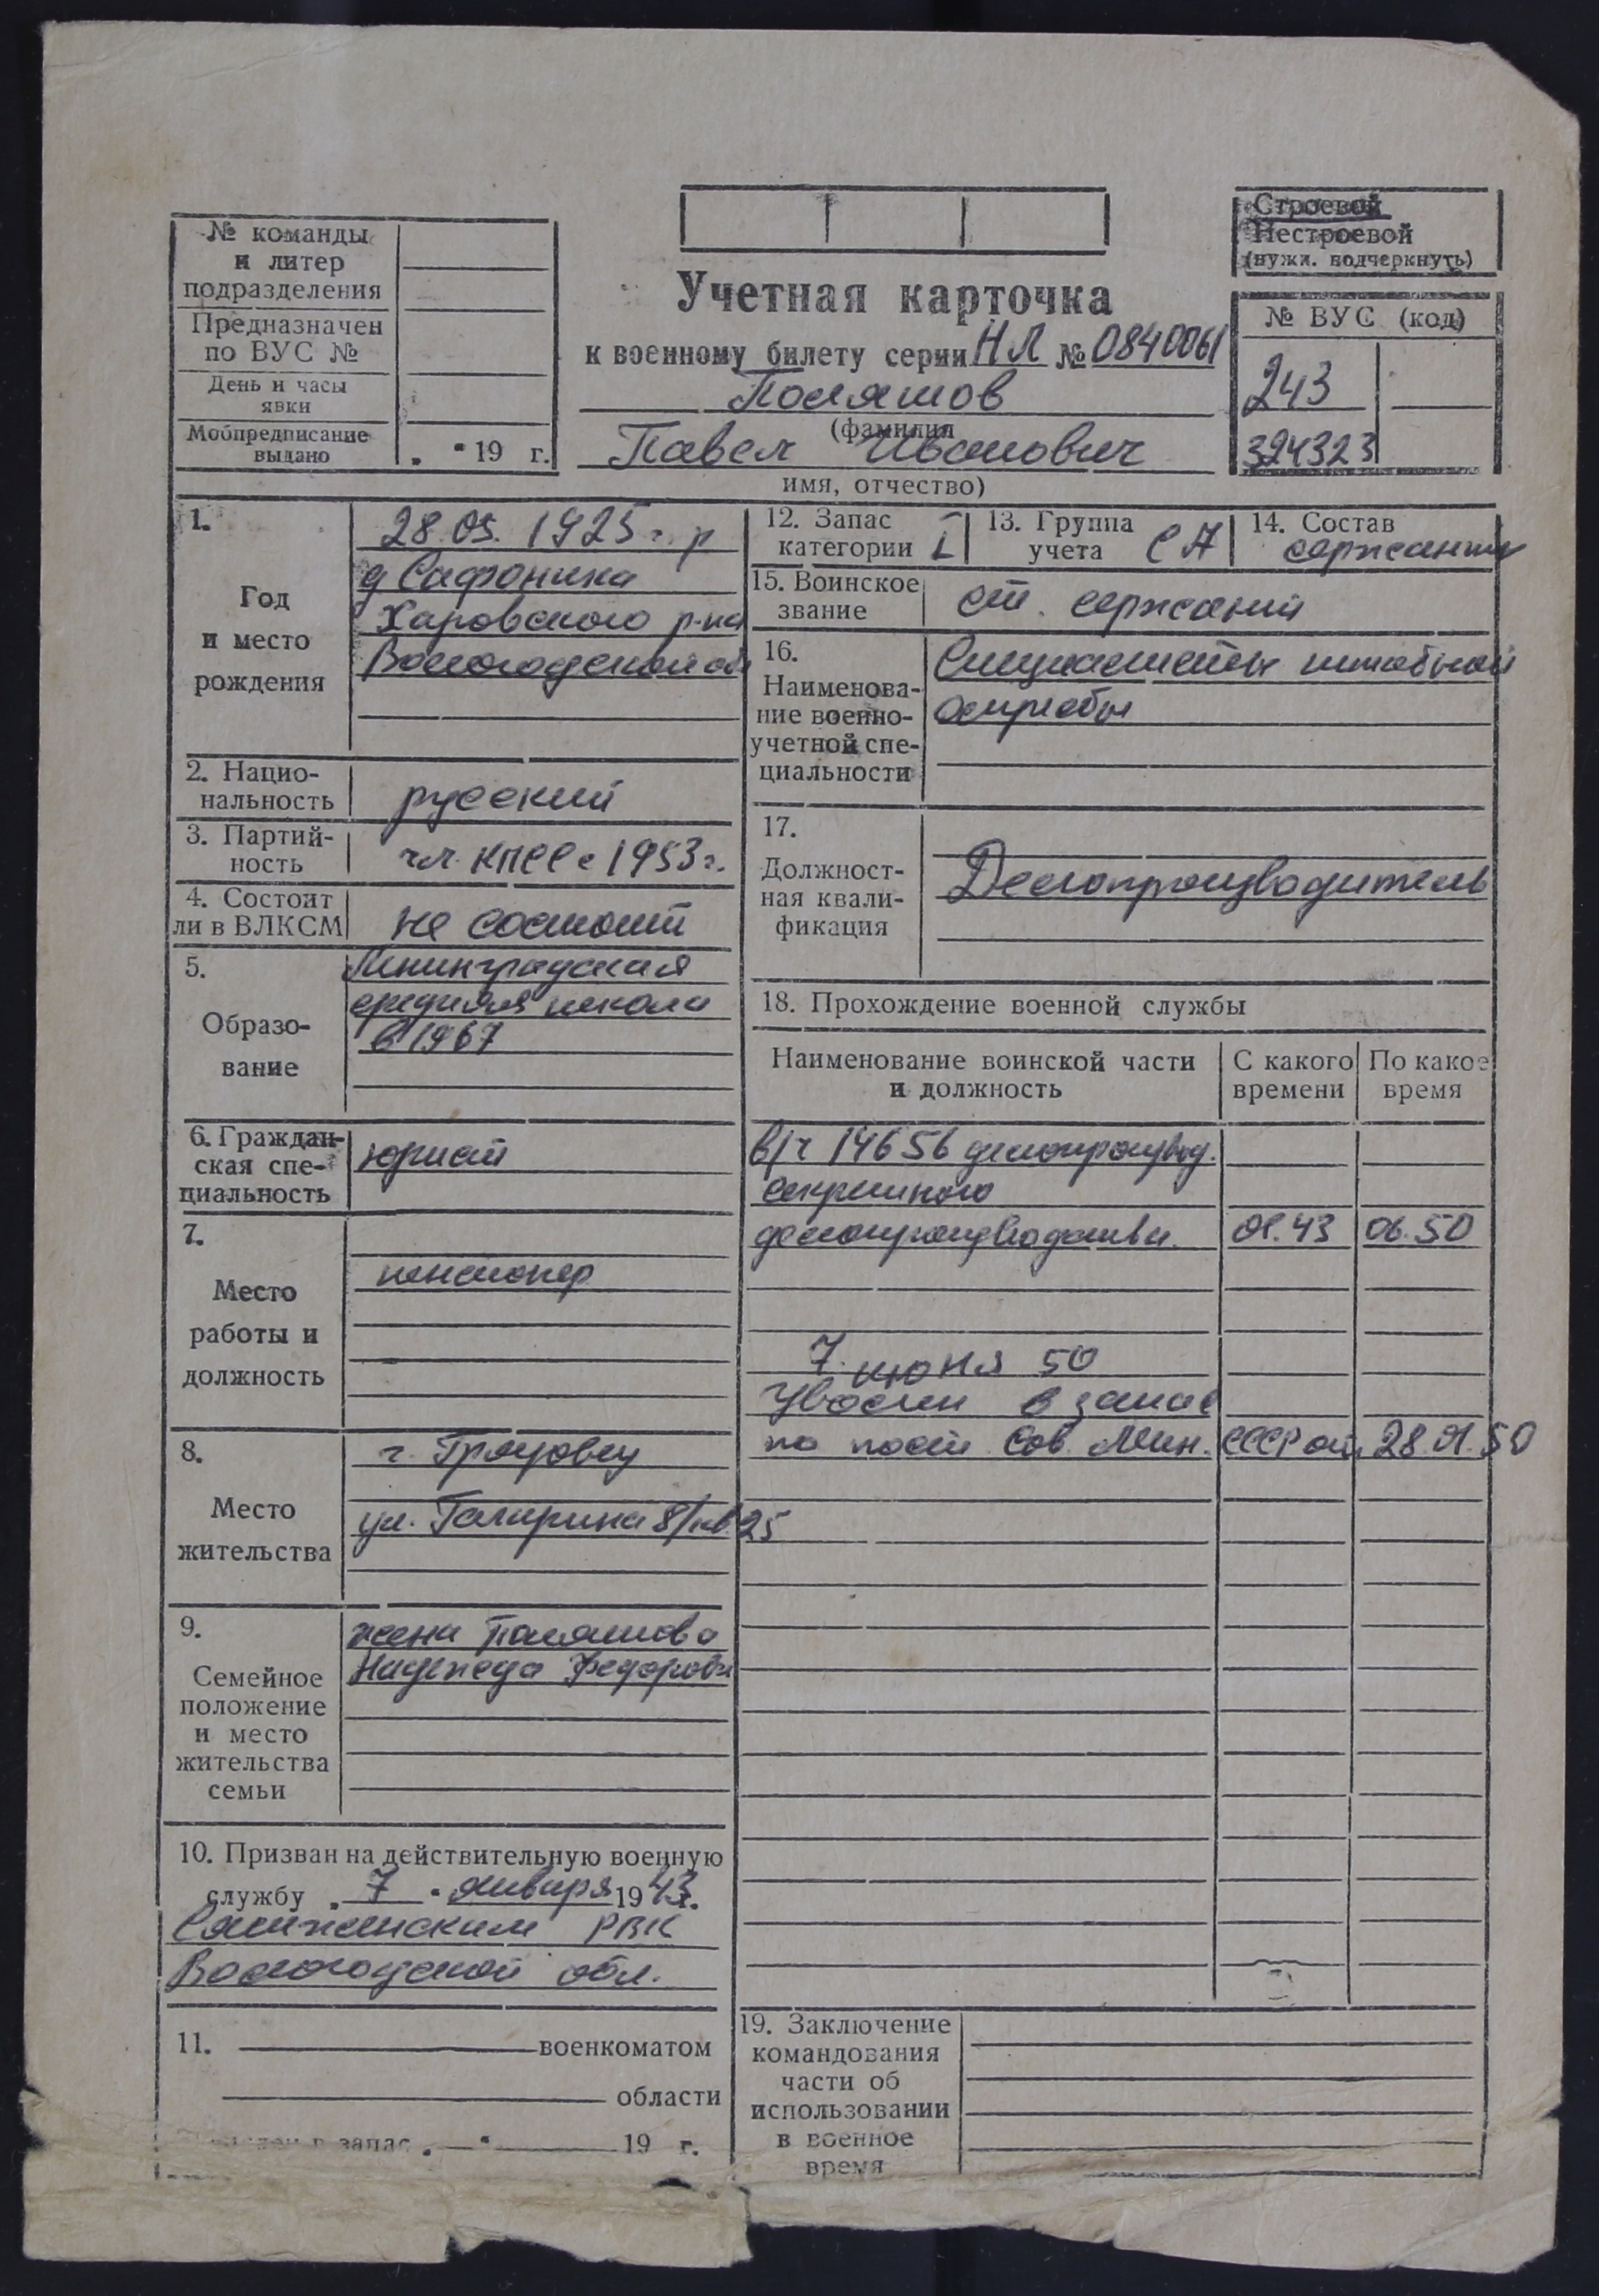 № команды
и литер
подразделения
Предназначен
по ВУС №
День и часы
явки
Мобпредписание
выдано
„ “ 19 г.
Учетная карточка
к военному билету серии НЛ № 0840061
Поляшов
(фамилия
Павел Иванович
имя, отчество)
Строевой
Нестроевой
(нужн. подчеркнуть)
№ ВУС (код)
243
324323
1.
Год
и место
рождения
28.05.1925 г.р
д Сафониха
Харовского р-на
Вологодской обл
2. Нацио-
нальность
русский
3. Партий-
ность
чл. КПСС с 1953 г.
4. Состоит
ли в ВЛКСМ
не состоит
5.
Образо-
вание
Ленинградская
средняя школа
в 1967
6. Граждан-
ская спе-
циальность
юрист
7.
Место
работы и
должность
пенсионер
8.
Место
жительства
г. Грязовец
ул. Гагарина 8/кв 25
9.
Семейное
положение
и место
жительства
семьи
жена Поляшова
Надежда Федоровн
10. Призван на действительную военную
службу „ 7 “ января 1943 г.
Сямженским РВК
Вологодской обл.
11. военкоматом
области
в запас „ “ 19 г.
12. Запас
категории I
13. Группа
учета СА
14. Состав
сержанты
15. Воинское
звание
ст. сержант
16.
Наименова-
ние военно-
учетной спе-
циальности
Специалисты штабной
службы
17.
Должност-
ная квали-
фикация
Делопроизводитель
18. Прохождение военной службы
Наименование воинской части
и должность
С какого
времени
По какое
время
в/ч 14656 делопроизвод.
секретного
делопроизводства 01.43 06.50
7 июня 50
Уволен в запас
по пост. Сов. Мин. СССР от 28.01.50
19. Заключение
командования
части об
использовании
в военное
время